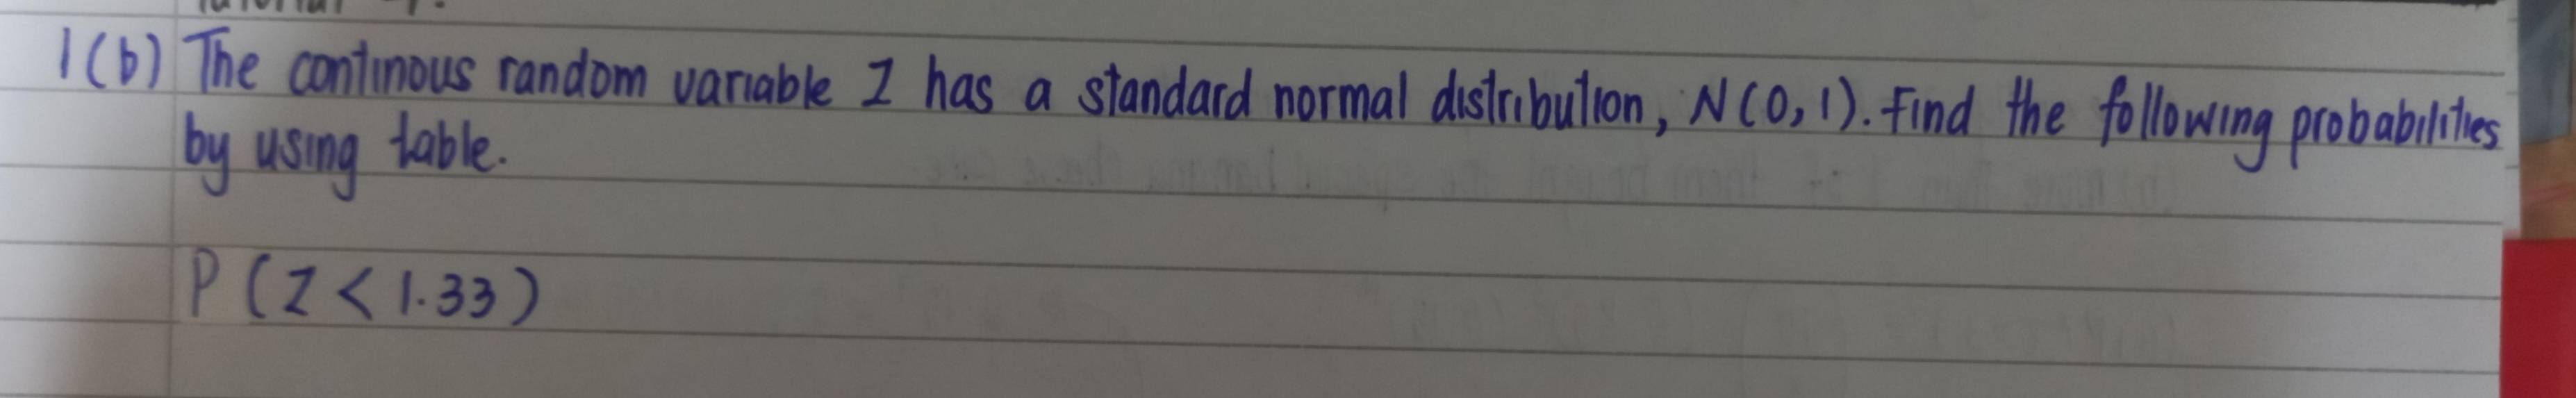 1(b) The continous random variable Z has a standard normal distribution, N(0,1). Find the following probabilities
by using table.
P(Z < 1.33)